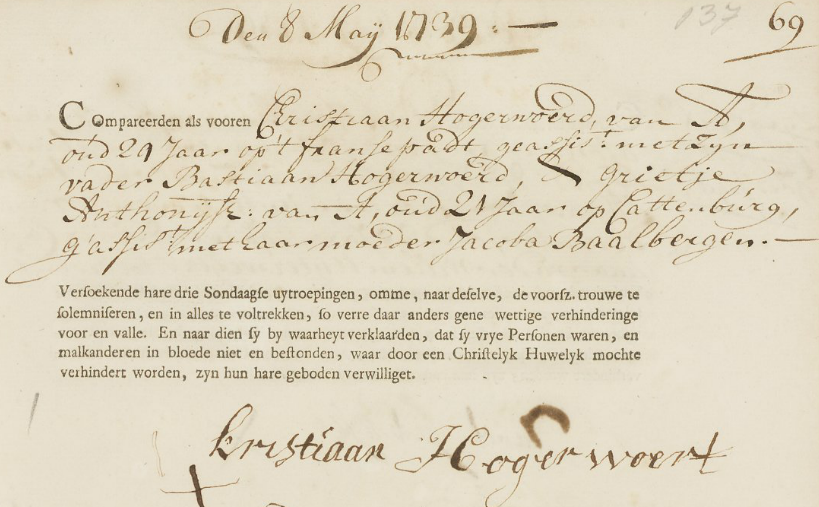 Den 8 Maÿ 1739:—
137
69
Compareerden als vooren Christiaan Hogerwoerd, van A,
oud 24 Jaar op't franse padt, geassist: met zyn
vader Bastiaan Hogerwoerd, & grietje
Anthonÿsz: van A, oud 21 Jaar op Cattenburg,
gassist met haar moeder Jacoba Baalbergen.—
Versoekende hare drie Sondaagse uytroepingen, omme, naar deselve, de voorsz. trouwe te
solemniseren, en in alles te voltrekken, so verre daar anders gene wettige verhinderinge
voor en valle. En naar dien sy by waarheyt verklaarden, dat sy vrye Personen waren, en
malkanderen in bloede niet en bestonden, waar door een Christelyk Huwelyk mochte
verhindert worden, zyn hun hare geboden verwilliget.
kristiaan Hogerwoert